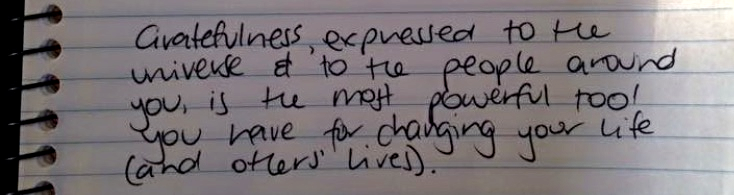 Gratefulness, expressed to the
universe & to the people around
you, is the most powerful tool
you have for changing your life
(and others' lives).